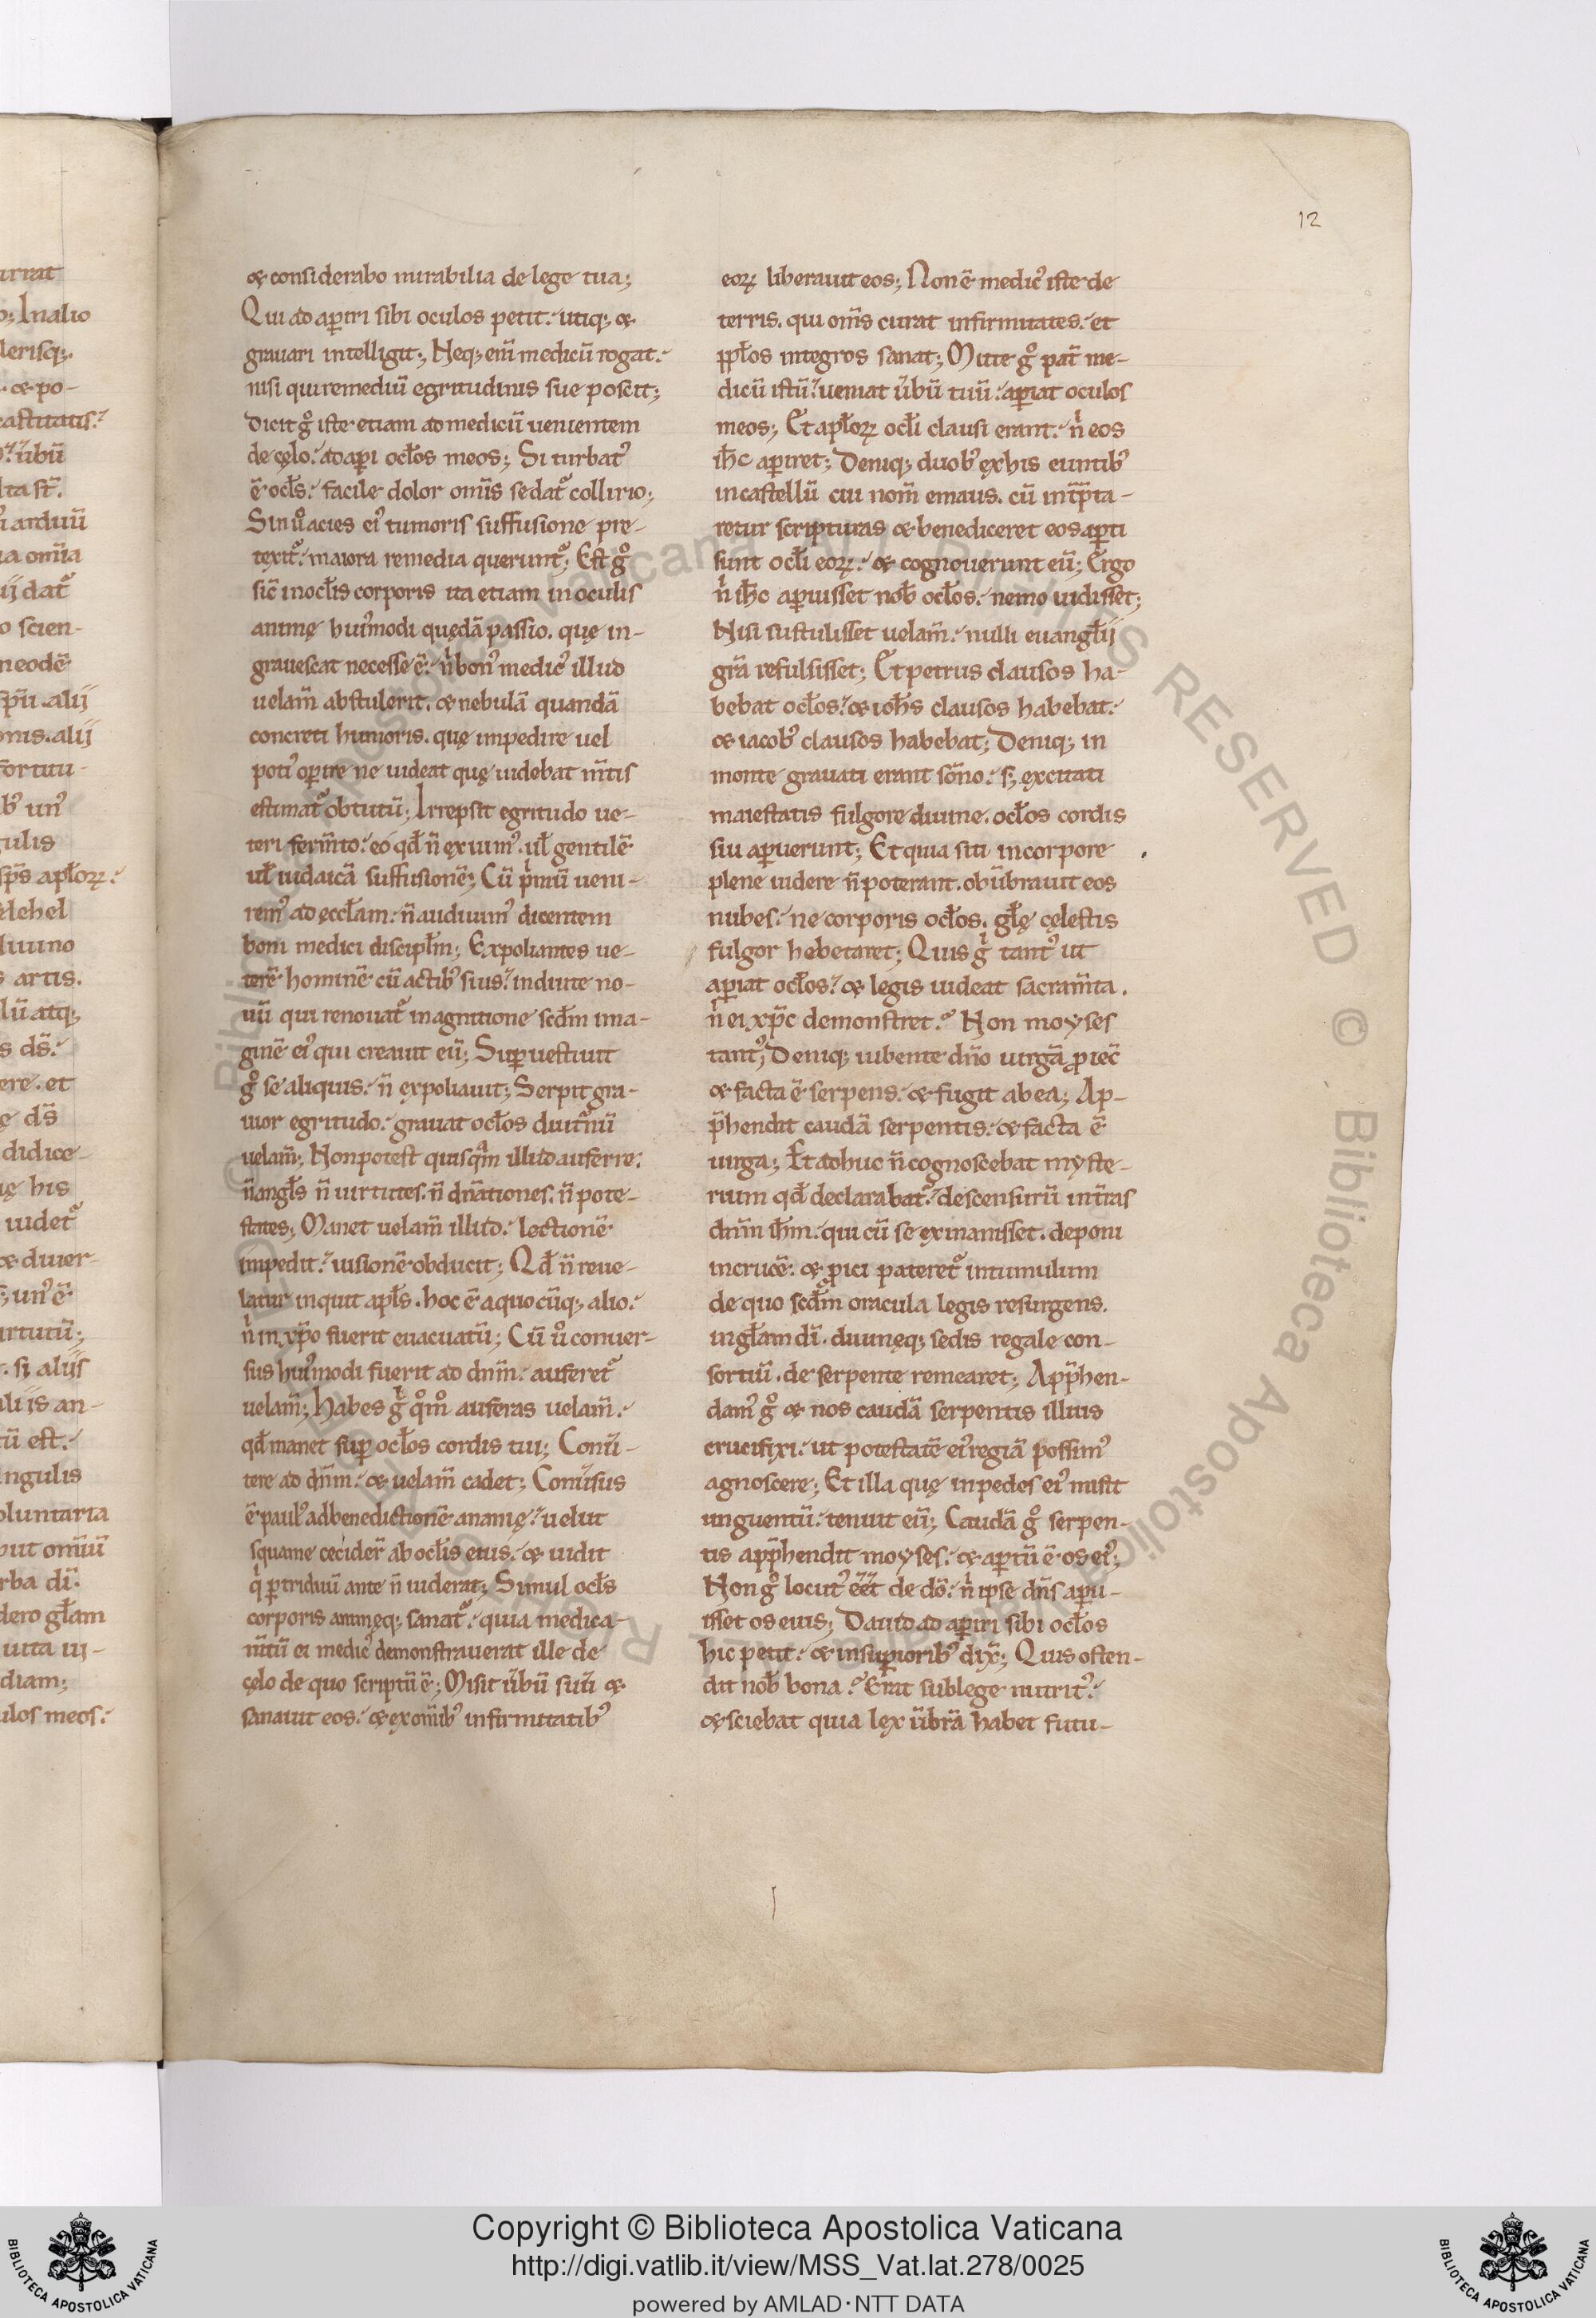 12
& considerabo mirabilia de lege tua;
Qui ad aperiri sibi oculos petit. utiq; &
grauari intelligit; Neq; eni᷑ medicū rogat.
nisi qui remediū egritudinis sue poscit;
dicit gͦ iste etiam ad medicū uenientem
de cęlo. adaperi ocl̄os meos; Si turbat᷒
ē ocl̄s. facile dolor om̄is sedat᷑ collirio;
Sin uͦ acies ei᷒ tumoris suffusione pre-
texit᷑. maiora remedia querunt᷑; Est gͦ
sic̄ inocl̄is corporis ita etiam in oculis
animę hui᷒modi quędā passio. quę in-
grauescat necesse ē. nͥ bon᷒ medic᷒ illud
uelam̄ abstulerit. & nebulā quandā
concreti humoris. quę impedire uel
poti᷒ operire ne uideat quę uidebat m̄tis
estimat᷑ obtutū; Irrepsit egritudo ue-
teri ferm̄to. eo qd̄ n̄ exuim᷒. ul̄ gentilē
ul̄ iudaicā suffusionē; Cū pͥmū ueni-
rem᷒ ad eccl̄am. n̄ audiuim᷒ dicentem
boni medici discipl̄m; Expoliantes ue-
terē hominē cū actib᷒ suis. induite no-
uū qui renouat᷑ inagnitione scd̄m ima-
ginē ei᷒ qui creauit eū; Superuestiuit
gͦ se aliquis. n̄ expoliauit; Serpit gra-
uior egritudo. grauat ocl̄os diuit̄nū
uelam̄; Nonpotest quisqͣm illud auferre.
n̄ angl̄s n̄ uirtutes. n̄ dn̄ationes. n̄ pote-
states; Manet uelam̄ illud. lectionē
impedit. uisionē obducit; Qd̄ n̄ reue-
latur inquit apl̄s. hoc ē aquo cūq; alio.
nͥ in xp̄o fuerit euacuatū; Cū uͦ conuer-
sus hui᷒modi fuerit ad dnm̄. auferet᷑
uelam̄; habes gͥ qͦmͦ auferas uelam̄.
qd̄ manet super ocl̄os cordis tui; Conu᷑-
tere ad dn̄m. & uelam̄ cadet; Conu᷑sus
ē paul᷒ adbenedictionē ananię. uelut
squame cecider̄ ab ocl̄is eius. & uidit
qͥ per triduū ante n̄ uiderat; Simul ocl̄s
corporis animęq; sanat᷑. quia medica-
m̄tū ei medic᷒ demonstrauerat ille de
cęlo de quo scriptū ē; Misit u᷑bū suū &
sanauit eos. & ex om̄ib᷒ infirmitatib᷒
eoꝝ liberauit eos; Non ē medic᷒ iste de
terris. qui om̄s curat infirmitates. et
ppl̄os integros sanat; Mitte gͦ pat᷑ me-
dicū istū. ueniat u᷑bū tuū. aperiat oculos
meos; Et apl̄oꝝ ocl̄i clausi erant. nͥ eos
ih̄c aperiret; Deniq; duob᷒ ex his euntib᷒
incastellū cui nom̄ emaus. cū int᷑pta-
retur scripturas & benediceret eos aperti
sunt ocl̄i eoꝝ. & cognouerunt eū; Ergo
nͥ ih̄c aperuisset nob̄ ocl̄os. nemo uidisset;
Nisi sustulisset uelam̄. nulli euangl̄ij
gr̄a refulsisset; Et petrus clausos ha-
bebat ocl̄os. & ioh̄s clausos habebat.
& iacob᷒ clausos habebat; Deniq; in
monte grauati erant som̄no. s; excitati
maiestatis fulgore diuine. ocl̄os cordis
sui aperuerunt; Et quia siti incorpore
plene uidere n̄ poterant. obūbrauit eos
nubes. ne corporis ocl̄os. gl̄ę cęlestis
fulgor hebetaret; Quis gͥ tant᷒ ut
aperiat ocl̄os. & legis uideat sacram̄ta.
nͥ ei xp̄c demonstret. Non moyses
tant᷒; Deniq; iubente dn̄o uirgā proiec̄
& facta ē serpens. & fugit ab ea; Ap-
p̄hendit caudā serpentis. & facta ē
uirga; Et adhuc n̄ cognoscebat myste-
rium qd̄ declarabat᷑. descensurū int᷑ras
dnm̄ ih̄m. qui cū se exinanisset. deponi
incrucē. & proici pateret᷑ intumulum
de quo scd̄m oracula legis resurgens.
ingl̄am di᷑. diuinęq; sedis regale con-
sortiū. de serpente remearet; App̄hen-
dam᷒ gͦ & nos caudā serpentis illius
crucifixi. ut potestatē ei᷒ regiā possim᷒
agnoscere; Et illa quę inpedes ei᷒ misit
unguentū. tenuit eū; Caudā gͦ serpen-
tis app̄hendit moyses. & apertū ē os ei᷒;
Non gͦ locut᷒ eēt de dō. nͥ ipse dn̄s aperu-
isset os eius; Dauid ad aperiri sibi ocl̄os
hic petit. & insuperiorib᷒ dix̄; Quis osten-
dit nob̄ bona. Erat sublege nutrit᷒.
& sciebat quia lex ūbrā habet futu-
Copyright © Biblioteca Apostolica Vaticana
http://digi.vatlib.it/view/MSS_Vat.lat.278/0025
powered by AMLAD·NTT DATA
BIBLIOTECA APOSTOLICA VATICANA
BIBLIOTECA APOSTOLICA VATICANA